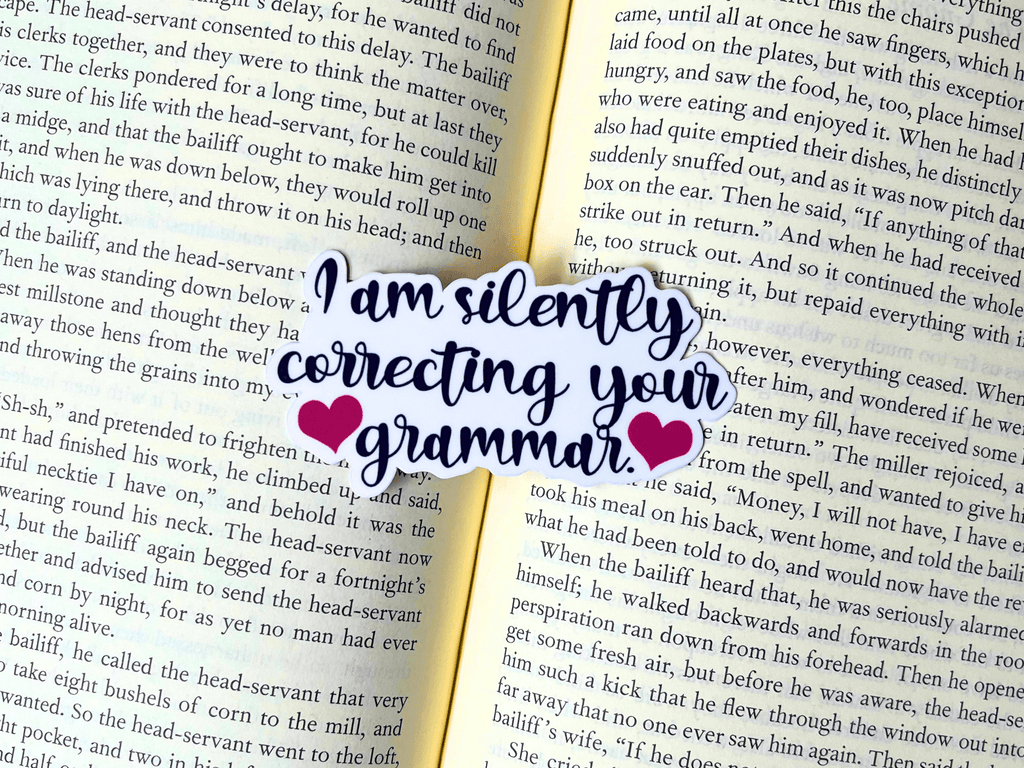 cape. The head-servant consented to this delay. The bailiff did not
his clerks together, and they were to think the matter over,
vice. The clerks pondered for a long time, but at last they
was sure of his life with the head-servant, for he could kill
a midge, and that the bailiff ought to make him get into
it, and when he was down below, they would roll up one
which was lying there, and throw it on his head; and then
urn to daylight.
the bailiff, and the head-servant
When he was standing down below
est millstone and thought they
away those hens from the
and throwing the grains into my
"Sh-sh," and pretended to frighten
had finished his work, he climbed up and said,
necktie I have on," and behold it was the
wearing round his neck. The head-servant now
but the bailiff again begged for a fortnight's
and advised him to send the head-servant
corn by night, for as yet no man had ever
morning alive.
bailiff, he called the head-servant that very
take eight bushels of corn to the mill, and
wanted. So the head-servant went to the loft,
pocket, and two in his
I am silently
correcting your
grammar.
this the chairs pushed
came, until all at once he saw fingers, which
laid food on the plates, but with this exception
hungry, and saw the food, he, too, place
who were eating and enjoyed it. When he had
also had quite emptied their dishes, he distinctly
suddenly snuffed out, and as it was now pitch
box on the ear. Then he said, "If anything of that
strike out in return." And when he had received
he, too struck out. And so it continued the whole
without returning it, but repaid everything with
however, everything ceased. When
after him, and wondered if he
eaten my fill, have received some
in return." The miller rejoiced,
from the spell, and wanted to give
he said, "Money, I will not have, I have
took his meal on his back, went home, and told the
what he had been told to do, and would now have the
When the bailiff heard that, he was seriously alarmed
himself; he walked backwards and forwards in the
perspiration ran down from his forehead. Then he
get some fresh air, but before he was aware, the
him such a kick that he flew through the window out
far away that no one ever saw him again. Then said the
bailiff's wife, "If he does
She